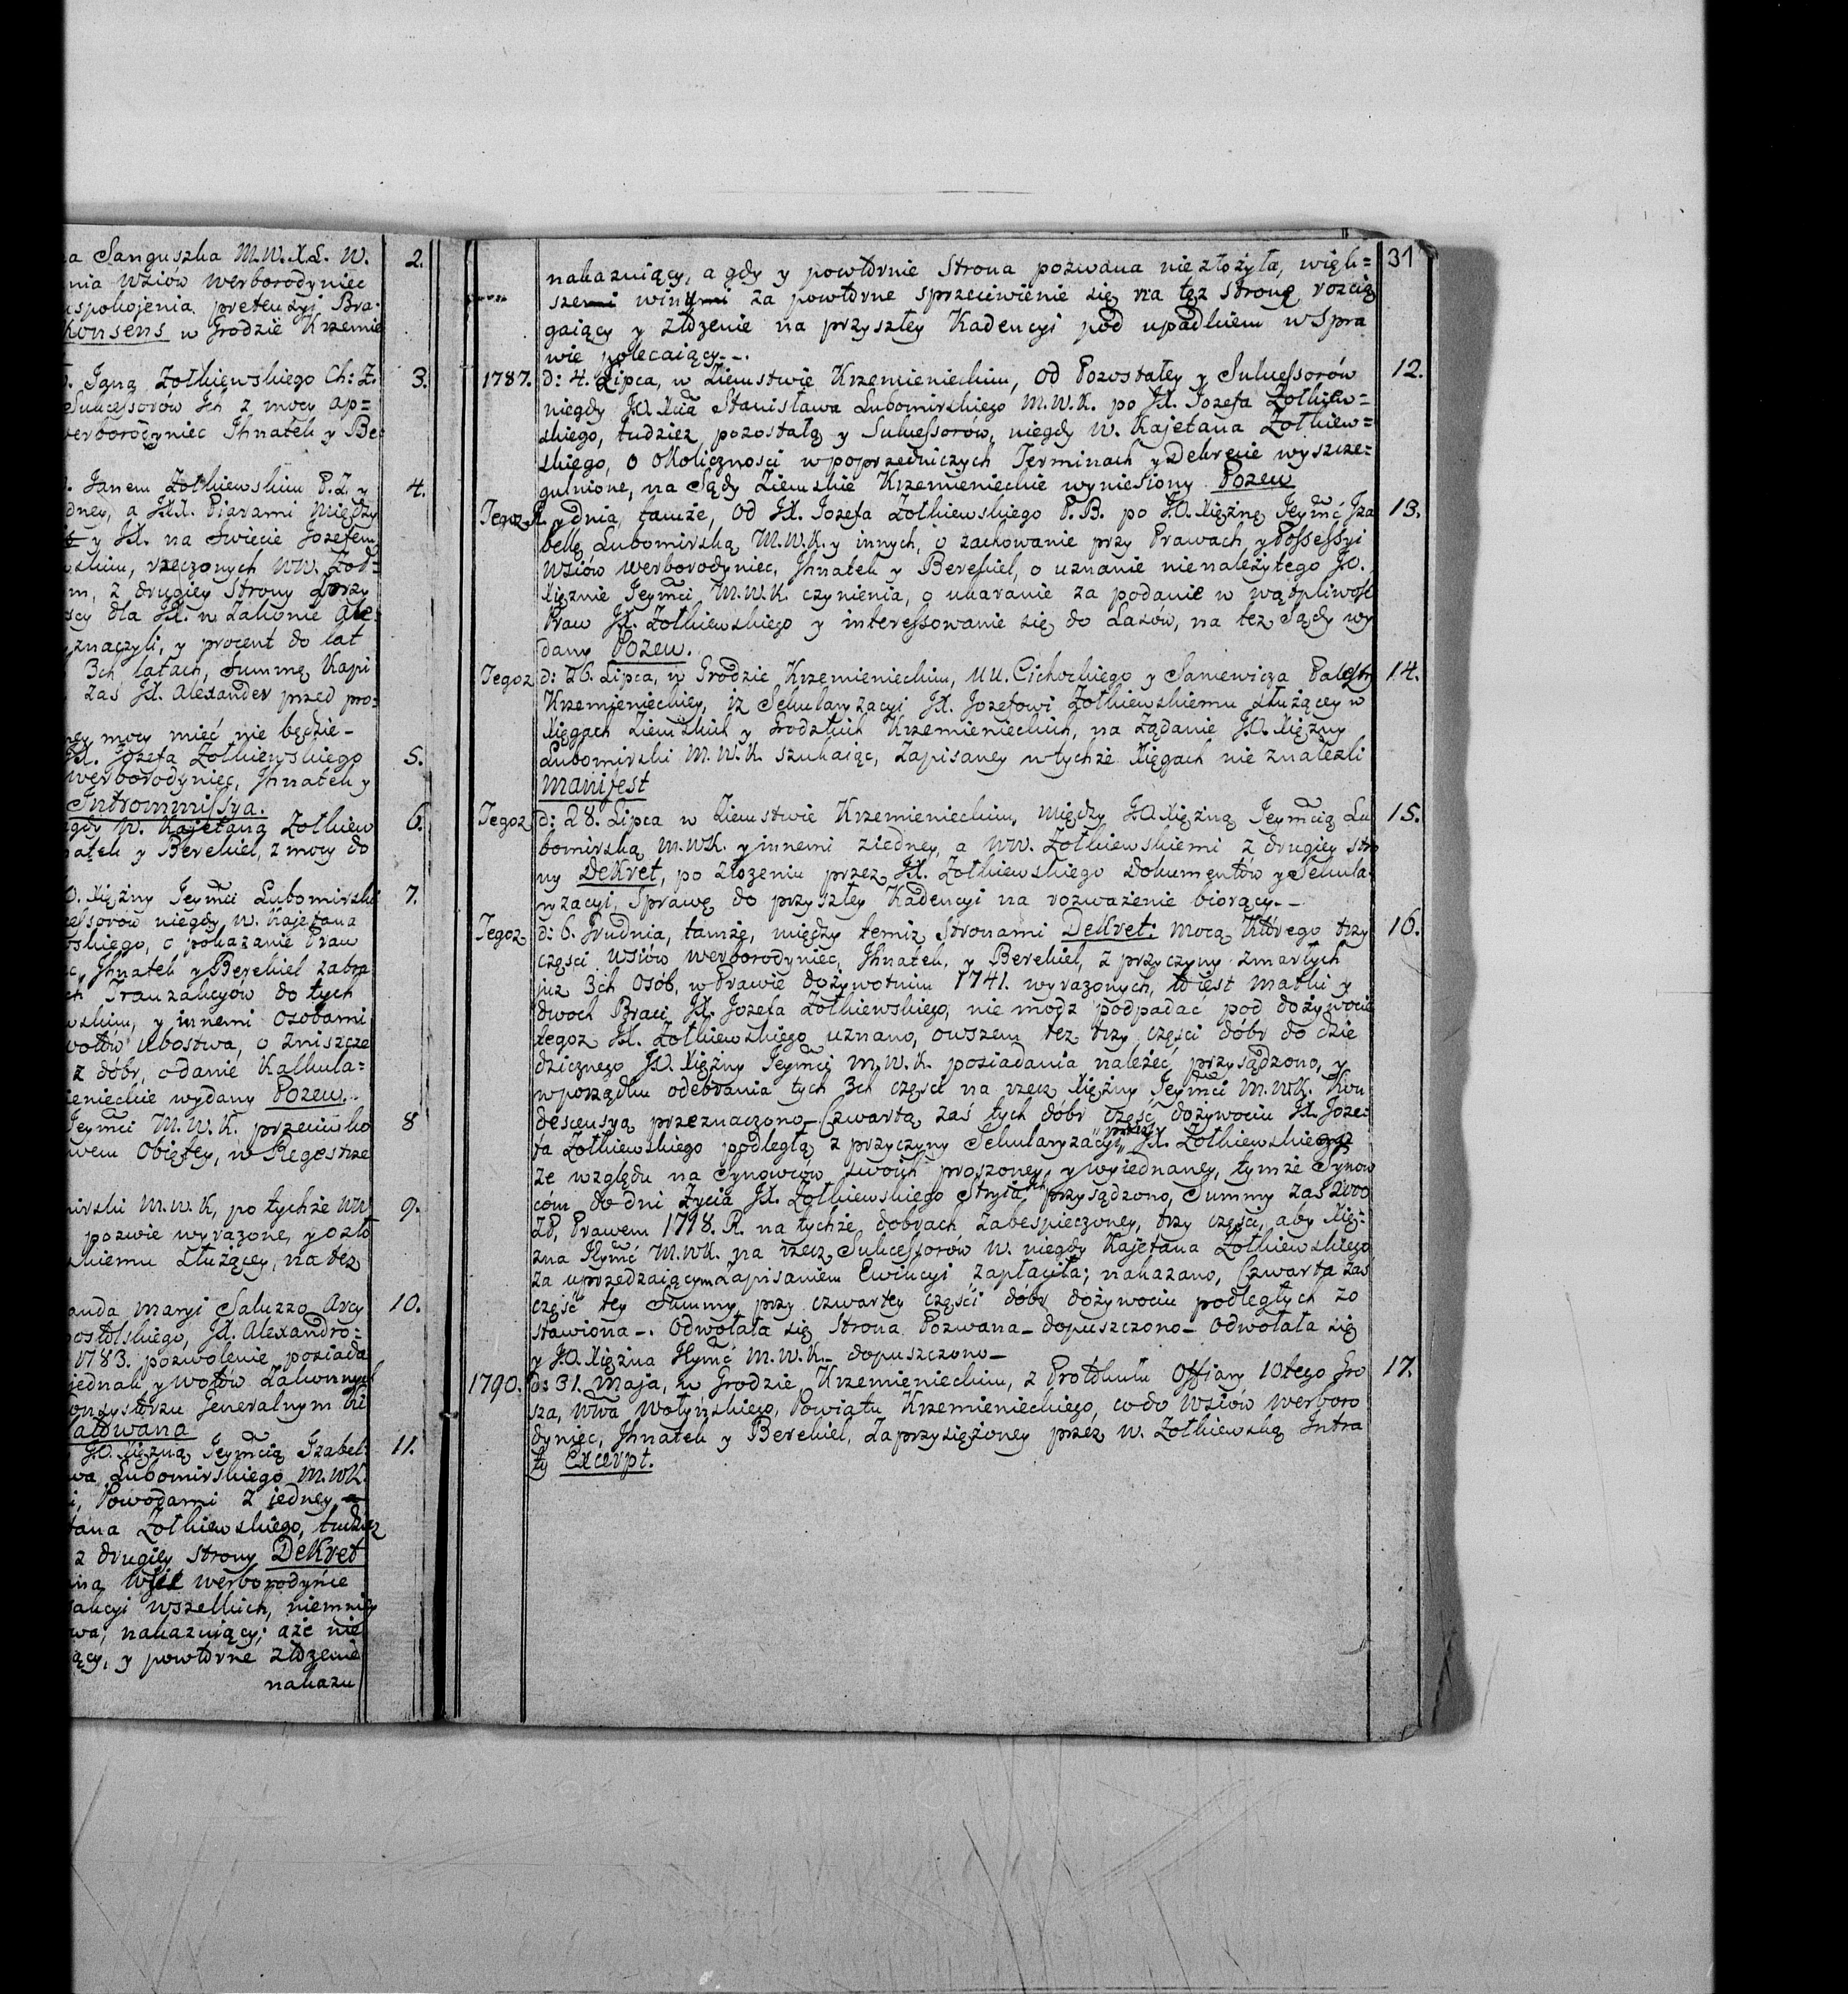 a Sanguszka M.W.X.L. W. 2.
nia Wsiów Werborodyniec
uspokojenia pretensyi Bra-
Konsens w Grodzie Krzemie
Jana Żołkiewskiego Ch: Z. 3.
Sukcessorów Ich z mocy ap=
werborodyniec Ihnatek y Be
Janem Żołkiewskim P.Z. y 4.
dney, a JXX. Piarami między
y JX. na Swiecie Jozefem
skim, rzeczonych WW. Żoł=
m, z drugiey Strony
scy dla JX. w Zakonie Ale
yznaczyli, y procent do lat
3ch latach, Summę Kapi
zaś JX. Alexander przed pro=
ney mocy mieć nie będzie_
JX. Jozefa Żołkiewskiego 5.
werborodyniec, Ihnatek y
Intromissya.
gdy W. Kajetana Żołkiew 6.
natek y Berekiel, z mocy do
O. Xiężny Jeymci Lubomirski 7.
cessorów niegdy W. Kajetana
skiego, o pokazanie Praw
c, Ihnatek y Berekiel zabra
ch Tranzakcyów do tych
wskim, y innemi osobami
wotów ubostwa, o zniszcze
z dobr, odanie Kalkula=
ienieckie wydany Pozew.
Jeymci M.W.K. przeciwko 8
wem Obiętey, w Regestrze
mirski M.W.K, po tychże WW 9.
pozwie wyrażone, y ozło
skiemu służącey, na też
anda Maryi Saluzzo Arcy 10.
postolskiego, JX. Alexandro=
1783. pozwolenie posiada
jednak y wotów Zakonnych
onsystorzu Jeneralnym Ki
atowana
JO. Xiężną Jeymcią Izabel= 11.
wa Lubomirskiego M.W.K.
i, Powodami z jedney
tana Żołkiewskiego, tudzież
z drugiey strony Dekret
ną Wsie werborodyńce
akcyi wszelkich, niemniey
wa, nakazuiący; aże nie
ący, y powtórne złożenie
nakazu
31
nakazuiący, a gdy y powtórnie Strona pozwana niezłożyła, więk=
szemi winami za powtórne sprzeciwienie się na tęż stronę rozcią
gaiący y złożenie na przyszłey Kadencyi pod upadkiem w Spra
wie polecaiący_.
1787. d: 4. Lipca, w Ziemstwie Krzemienieckim, od Pozostałey y Sukcessorów 12.
niegdy JO. Xcia Stanisława Lubomirskiego M.W.K. po JX. Jozefa Żołkiew=
skiego, tudzież pozostałą y Sukcessorów, niegdy W. Kajetana Żołkiew=
skiego, o okoliczności w poprzedniczych Terminach y Dekrecie wyszcze=
gulnione, na Sądy Ziemskie Krzemienieckie wyniesiony Pozew
Tegoż R. y dnia, tamże, od JX. Jozefa Żołkiewskiego P.B. po JO. Xiężnę Jeymć Iza 13.
bellę Lubomirską M.W.K. y innych, o zachowanie przy Prawach y Possessyi
Wsiów werborodyniec, Ihnatek y Berekiel, o uznanie nienależytego JO.
Xiężnie Jeymci M.W.K. czynienia, o ukaranie za podanie w wątpliwość
Praw JX. Żołkiewskiego y interessowanie się do Lasów, na też Sądy wy
dany Pozew.
Tegoż d: 26. Lipca, w Grodzie Krzemienieckim, UU. Cichockiego y Saniewicza Palestry 14.
Krzemienieckiey, iż Sekularyzacyi JX. Jozefowi Żołkiewskiemu służącey w
Xięgach Ziemskich y Grodzkich Krzemienieckich, na żądanie JO. Xiężny
Lubomirski M.W.K. szukaiąc, zapisaney w tychże Xięgach nie znalezli
Manifest
Tegoż d: 28. Lipca w Ziemstwie Krzemienieckim, między JO Xiężną Jeymcią Lu 15.
bomirską M.WK. y innemi ziedney, a WW. Żołkiewskiemi z drugiey stro
ny Dekret, po złożeniu przez JX. Żołkiewskiego Dokumentów y Sekula
ryzacyi, Sprawę do przyszłey Kadencyi na rozważenie biorący_
Tegoż d: 6. Grudnia, tamże, między temiż Stronami Dekret: mocą którego trzy 16.
części wsiów werborodyniec, Ihnatek, y Berekiel, z przyczyny zmarłych
już 3ch osób, w Prawie dożywotnim 1741. wyrażonych, to iest Matki y
dwoch Braci JX. Jozefa Żołkiewskiego, nie modz podpadać pod dożywocie
tegoż JX. Żołkiewskiego uznano, owszem też trzy części dóbr do dzie
dzicznego JO. Xiężny Jeymci M.W.K. posiadania należeć przysądzono, y
w porządku odebrania tych 3ch części na rzecz Xiężny Jeymci M.WK. Kon
descensyą przeznaczono_ Czwartą zaś tych dóbr część dożywociu JX. Joze=
fa Żołkiewskiego podległą z przyczyny Sekularyzacyi przez JX. Żołkiewskiego
ze względu na Synowców swoich proszoney, y wyiednaney, tymże Synow
com do dni życia JX. Żołkiewskiego Stryia Ich przysądzono, Summy zaś 2000
ZP, Prawem 1718. R. na tychże dobrach zabespieczoney, trzy części, aby Xię=
żna Jeymć M.WK. na rzecz Sukcessorów W. niegdy Kajetana Żołkiewskiego
za uprzedzaiącym zapisaniem Ewikcyi zapłaciła; nakazano, Czwarta zaś
część tey Summy przy czwartey części dobr dożywociu podległych zo
stawiona_. Odwołała się Strona Pozwana_ dopuszczono_ Odwołała się
y JO. Xiężna Jeymć M.W.K._ dopuszczono_
1790. d: 31. Maja, w Grodzie Krzemienieckim, z Protokułu Offiary 10tego Gro 17.
sza, Wwa Wołyńskiego, Powiatu Krzemienieckiego, co do Wsiów werboro
dyniec, Ihnatek y Berekiel, zaprzysiężoney przez W. Żołkiewską Intra
ty Excerpt.